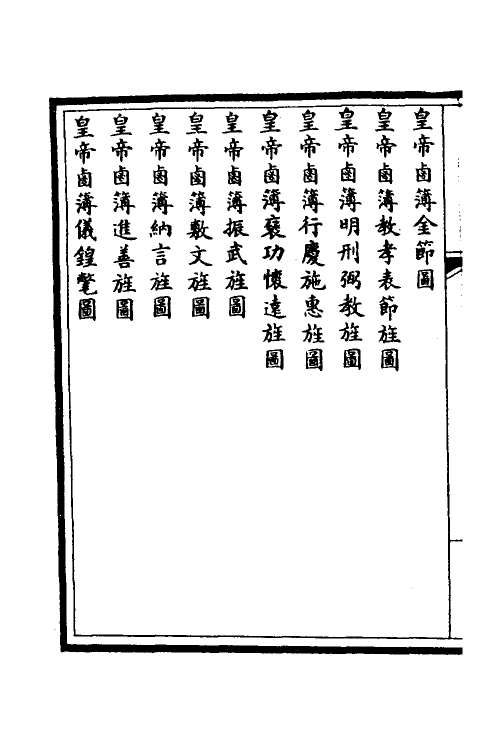 皇帝鹵簿金節圖
皇帝鹵簿教孝表節旌圖
皇帝鹵簿明刑弼教旌圖
皇帝鹵簿行慶施惠旌圖
皇帝鹵簿襃功懷遠旌圖
皇帝鹵簿振武旌圖
皇帝鹵簿敷文旌圖
皇帝鹵簿納言旌圖
皇帝鹵簿進善旌圖
皇帝鹵簿儀鍠氅圖